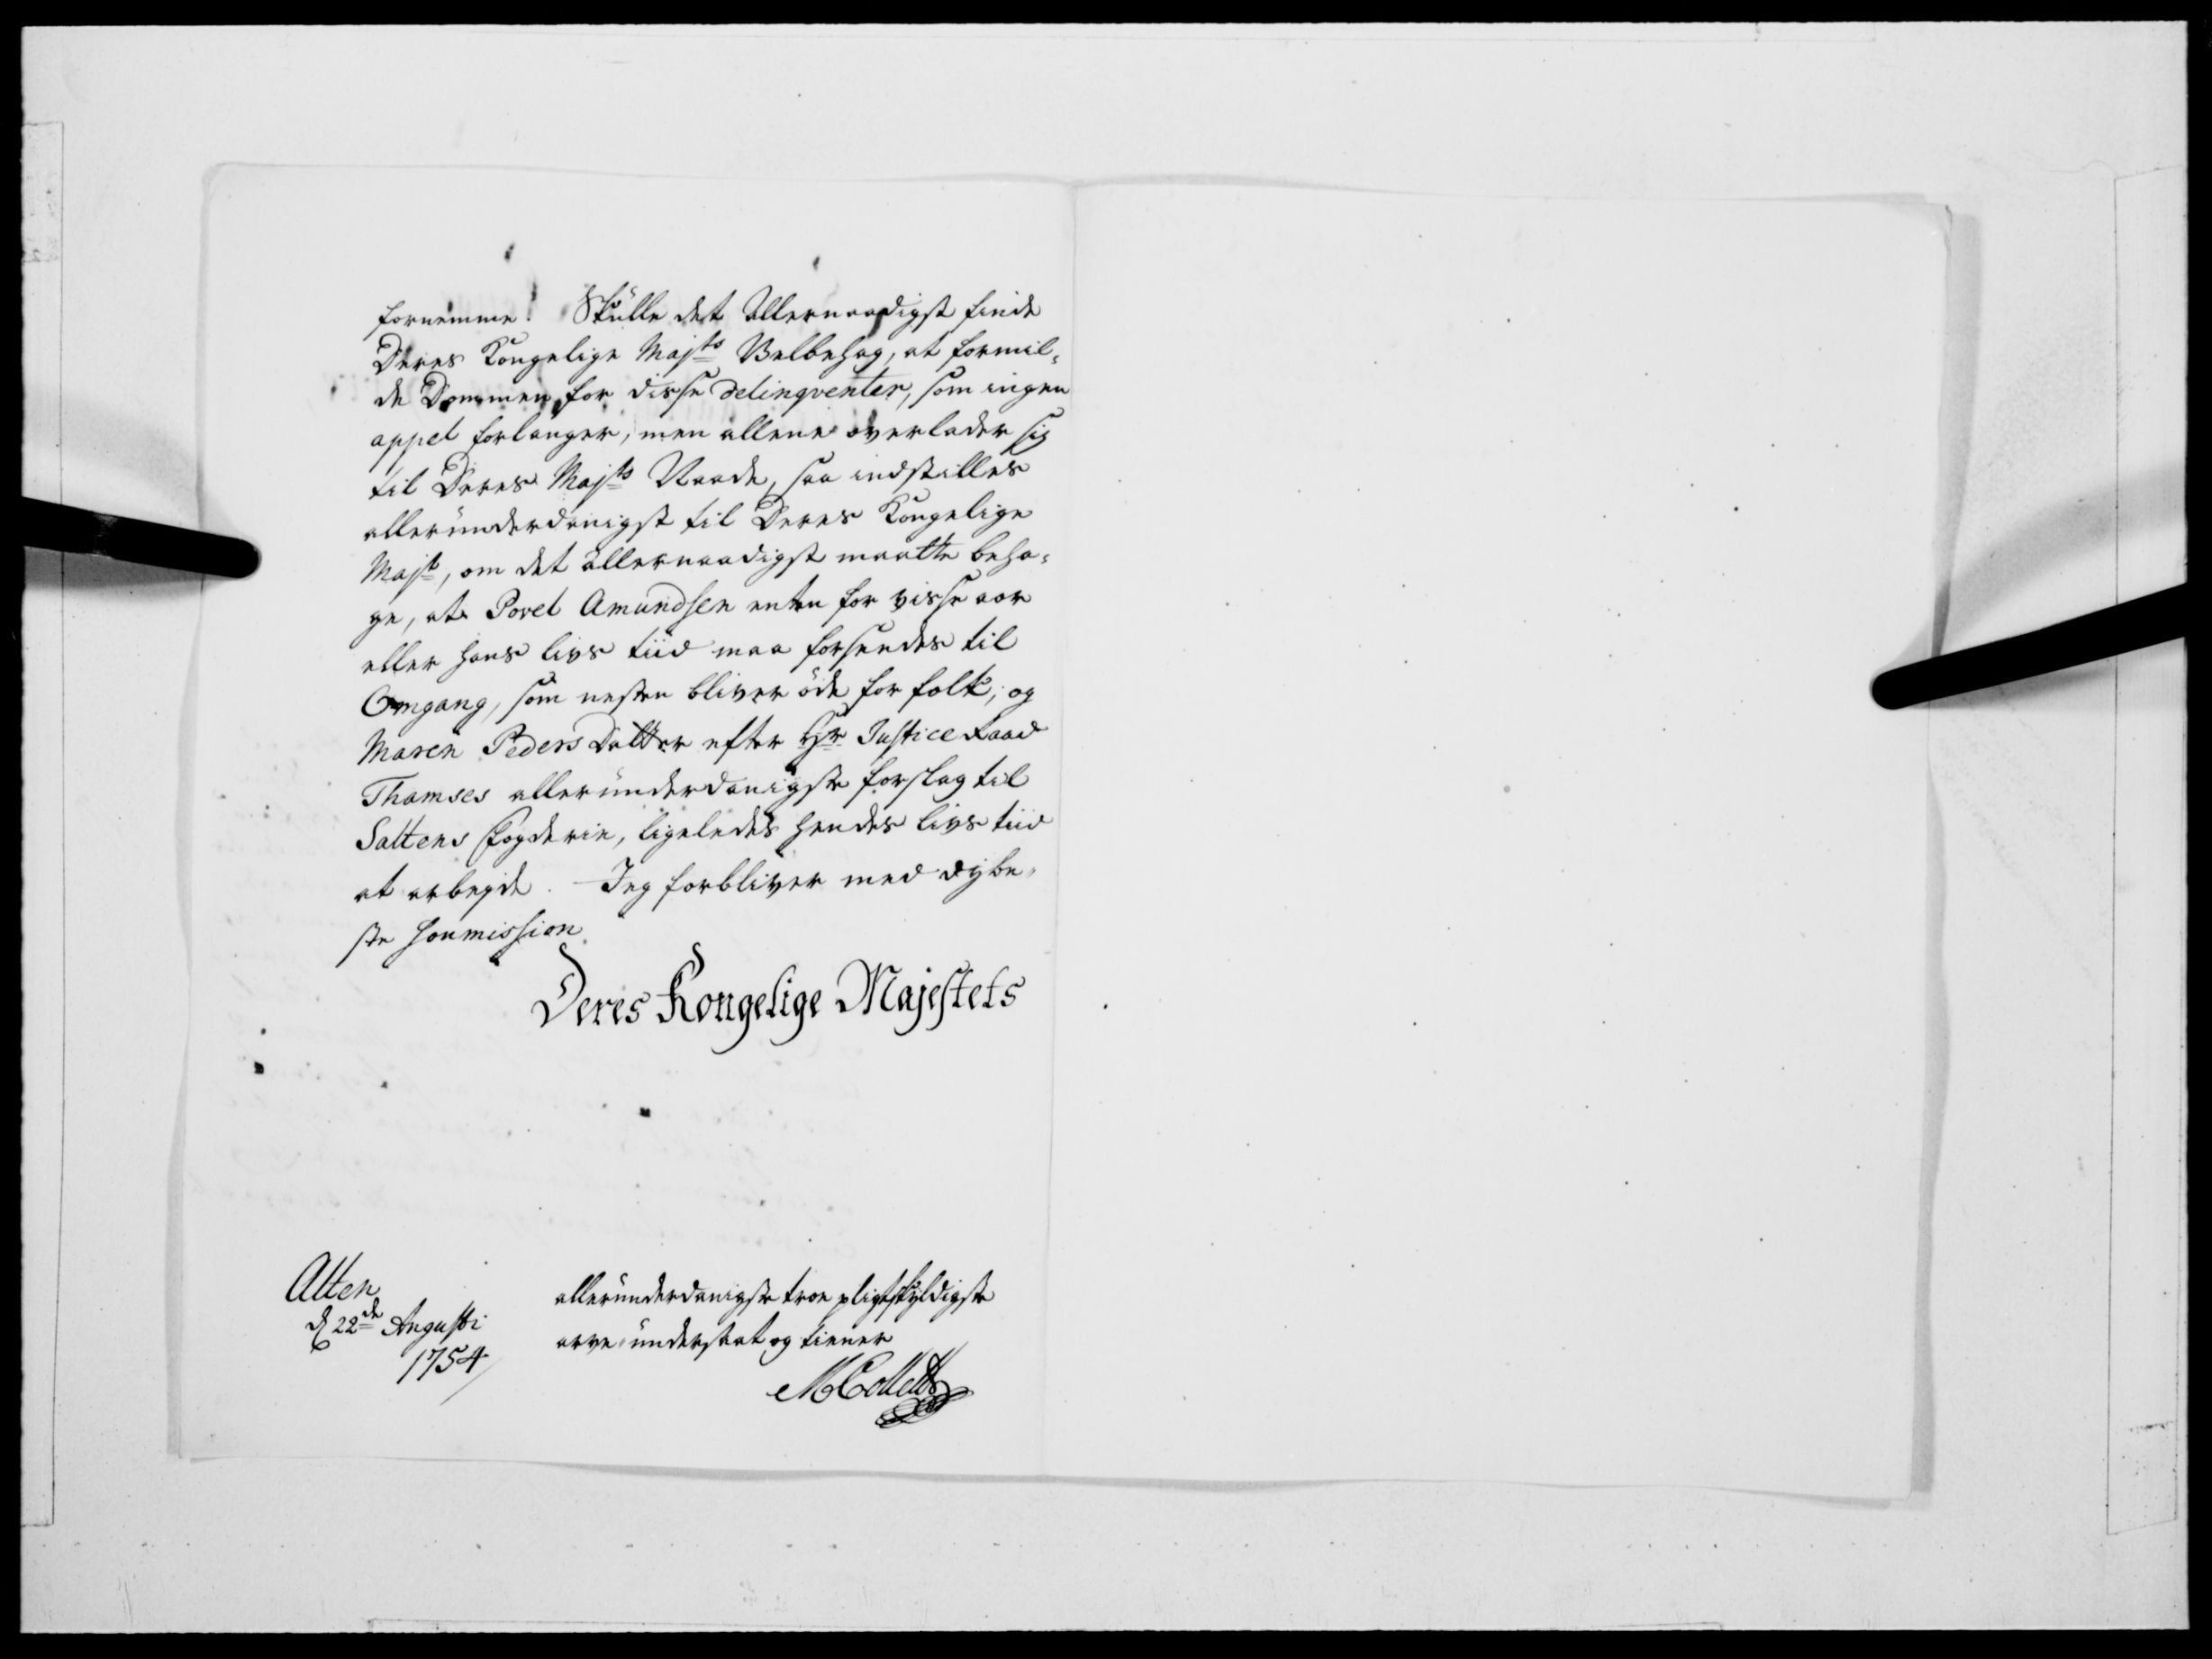 fornemme. Skulle det Allernaadigst finde
Deres Kongelige Majts Velbehag, at formil-
de Dommen for disse delinqventer, som ingen
appel forlanger, men allene overlader sig
til Deres Majts Naade, saa indstilles
allerunderdanigst til Deres Kongelige
Majt, om det allernaadigst maatte beha-
ge, at Povel Amundsen enten for visse aar
eller hans livs tiid maa forsendes til
Omgang, som nesten bliver öde for folk, og
Maren PedersDatter efter Hr Justice Raad
Thamses allerunderdanigste forslag til
Saltens Fogderie, ligeledes hendes livs tiid
at arbeyde. Jeg forbliver med dybe-
ste Soumission
Deres Kongelige Majestets
Alten
d 22de Augusti
1754
allerunderdanigste troe pligtskyldigste
arve-understaat og tienner
MCollett